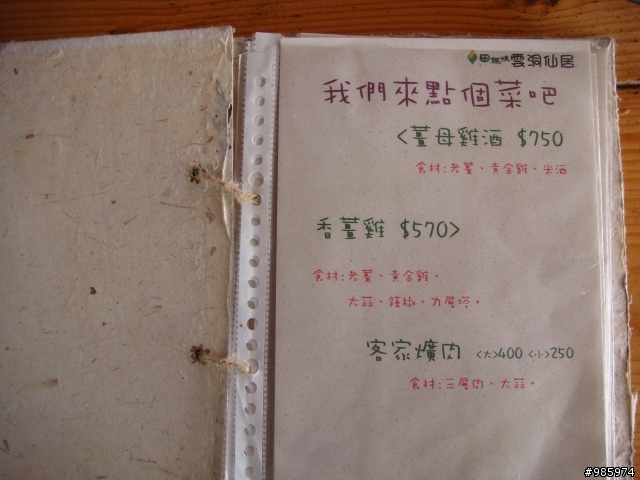 田媽媽 雲洞仙居
我們來點個菜吧
<薑母雞酒 $750
食材:老薑、黃金雞、米酒
香薑雞 $570>
食材:老薑、黃金雞、
大蒜、辣椒、九層塔。
客家爌肉 <大>400 <小>250
食材:三層肉、大蒜。
#985974